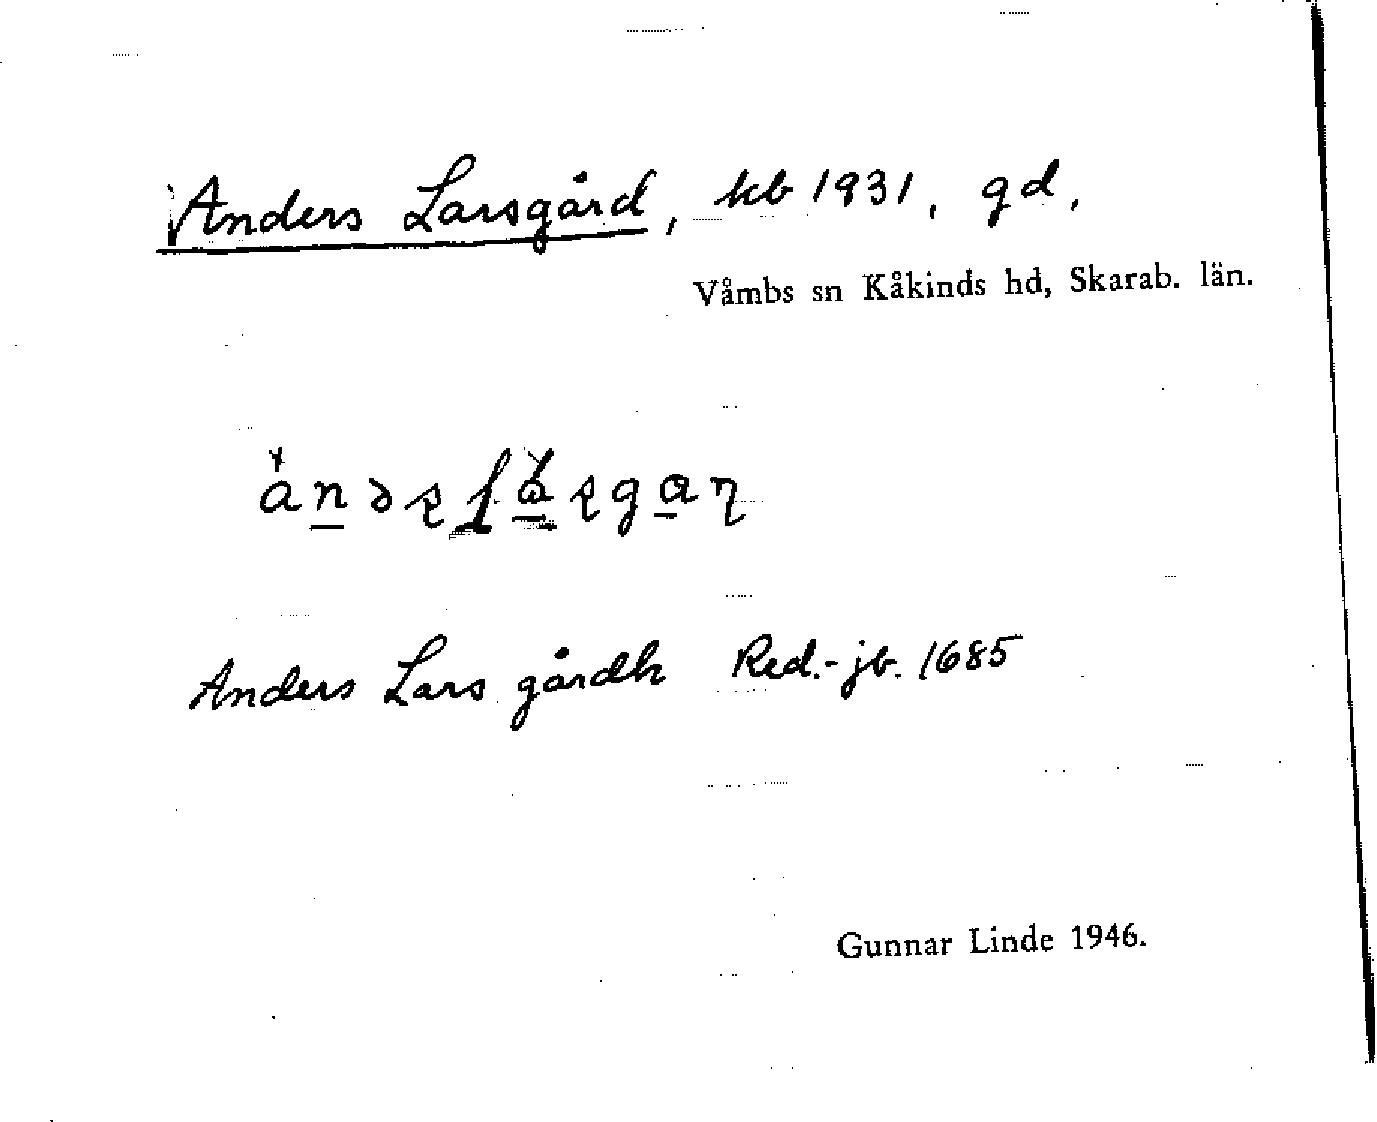 Anders Larsgård, kb 1931, gd,
Våmbs sn Kåkinds hd, Skarab. län.
Anders Lars gårdh Red.-jb. 1685
Gunnar Linde 1946.